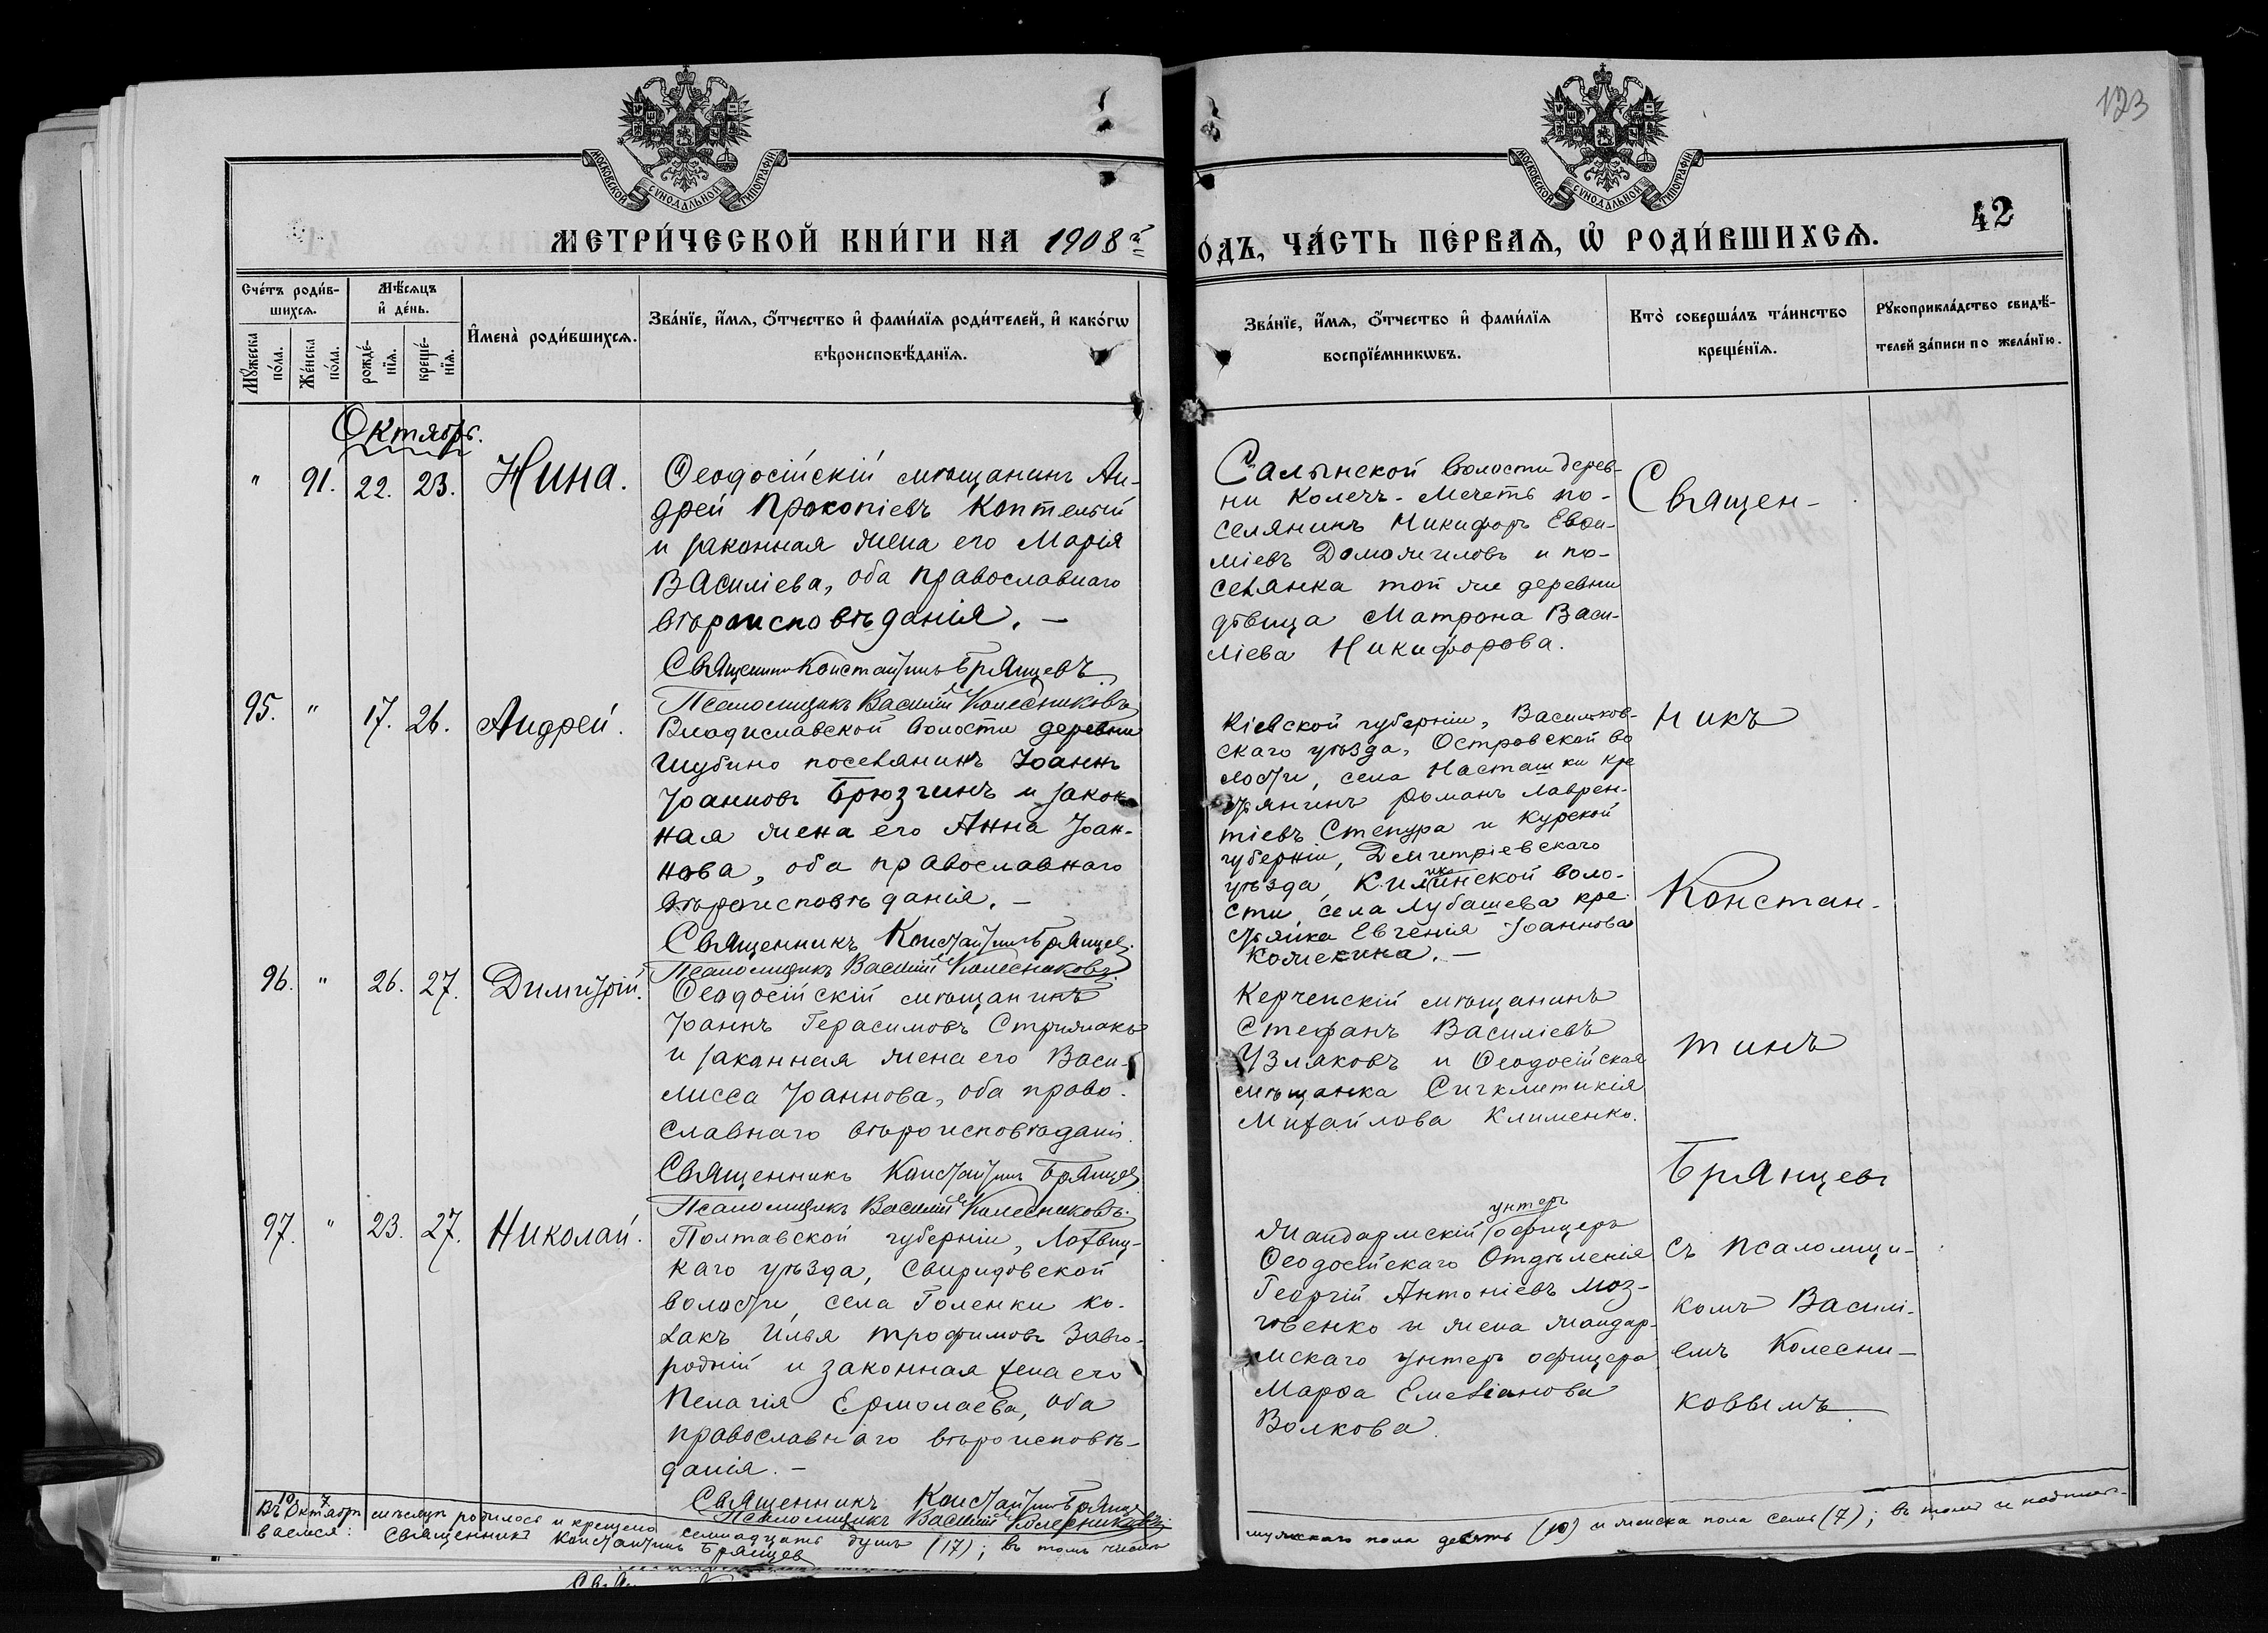 123
42
МОСКОВСКОЙ СѴНОДАЛЬНОЙ ТИПОГРАФІИ
МОСКОВСКОЙ СѴНОДАЛЬНОЙ ТИПОГРАФІИ
МЕТРИ́ЧЕСКОЙ КНИ́ГИ НА 1908й
ОДЪ, ЧА́СТЬ ПЕ́РВАЯ, Ѽ РОДИ́ВШИХСЯ.
Сче́тъ роди́в-
шихся.
Мꙋ́жеска по́ла.
Же́нска по́ла.
Мѣ́сяцъ
и҆ де́нь.
рожде́-
нїя.
креще́-
нїя.
И҆мена̀ роди́вшихся.
Зва́нїе, и҆́мя, ѻ҆́тчество и҆ фами́лїя роди́телей, и҆ како́гѡ
вѣроисповѣ́данїя.
Зва́нїе, и҆́мя, ѻ҆́тчество и҆ фами́лїя
воспрїе́мникѡвъ.
Кто̀ соверша́лъ та́инство
креще́нїя.
Рꙋкоприкла́дство свидѣ́-
телей за́писи по жела́нїю.
Октябрь.
" 91. 22. 23. Нина.
Ѳеодосійскій мѣщанинъ Ан-
дрей Прокопіевъ Коптелый
и законная жена его Марія
Василіева, оба православнаго
вѣроисповѣданія. —
Священникъ Константинъ Брянцевъ
Псаломщикъ Василій Колесниковъ
Салынской волости дерев-
ни Колечъ-Мечеть по-
селянинъ Никифоръ Евѳи-
міевъ Доможиловъ и по-
селянка той же деревни
дѣвица Матрона Васи-
ліева Никифорова.
95. " 17. 26. Андрей.
Владиславской волости деревни
Шубино поселянинъ Іоаннъ
Іоанновъ Брюзгинъ и закон
ная жена его Анна Іоан-
нова, оба православнаго
вѣроисповѣданія. —
Священникъ Константинъ Брянцев.
Псаломщикъ Василій Колесниковъ.
Кіевской губерніи, Васильков-
скаго уѣзда, Островской во
лости, села Насташки кре
стьянинъ Романъ Лаврен-
тіевъ Степура и Курской
губерніи, Дмитріевскаго
уѣзда, воло-
сти, села Лубашева кре-
стьянка Евгенія Іоаннова
Комекина. —
96. " 26. 27. Димитрій.
Ѳеодосійскій мѣщанинъ
Іоаннъ Герасимовъ Стрижакъ
и законная жена его Васи-
лисса Іоаннова, оба право-
славнаго вѣроисповѣданія.
Священникъ Константинъ Брянцев
Псаломщикъ Василій Колесниковъ.
Керченскій мѣщанинъ
Стефанъ Василіевъ
Узляковъ и Ѳеодосійская
мѣщанка Сигклитикія
Михайлова Клименко.
97. " 23. 27. Николай.
Полтавской губерніи, Лохвиц-
каго уѣзда, Свиридовской
волости, села Голенки ко-
закъ Илья Трофимовъ Завго-
родній и законная жена его
Пелагія Ермолаева, оба
православнаго вѣроисповѣ-
данія. —
Священникъ Константинъ Брянцев
Псаломщикъ Василій Колесниковъ.
унтеръ
Жандармскій офицеръ
Ѳеодосійскаго Отдѣленія
Георгій Антоніевъ Моз-
говенко и жена жандар-
мскаго унтеръ офицера
Марѳа Емеліанова
Волкова.
Священ-
никъ
Констан-
тинъ
Брянцевъ
съ псаломщи-
комъ Василі-
емъ Колесни-
ковымъ.
10 7
Въ Октябрѣ мѣсяцѣ родилось и крещено семнадцать душъ (17); въ томъ числѣ
мужскаго пола десять (10) и женска пола семь (7); въ томъ и подписы-
ваемся: Священникъ Константинъ Брянцев